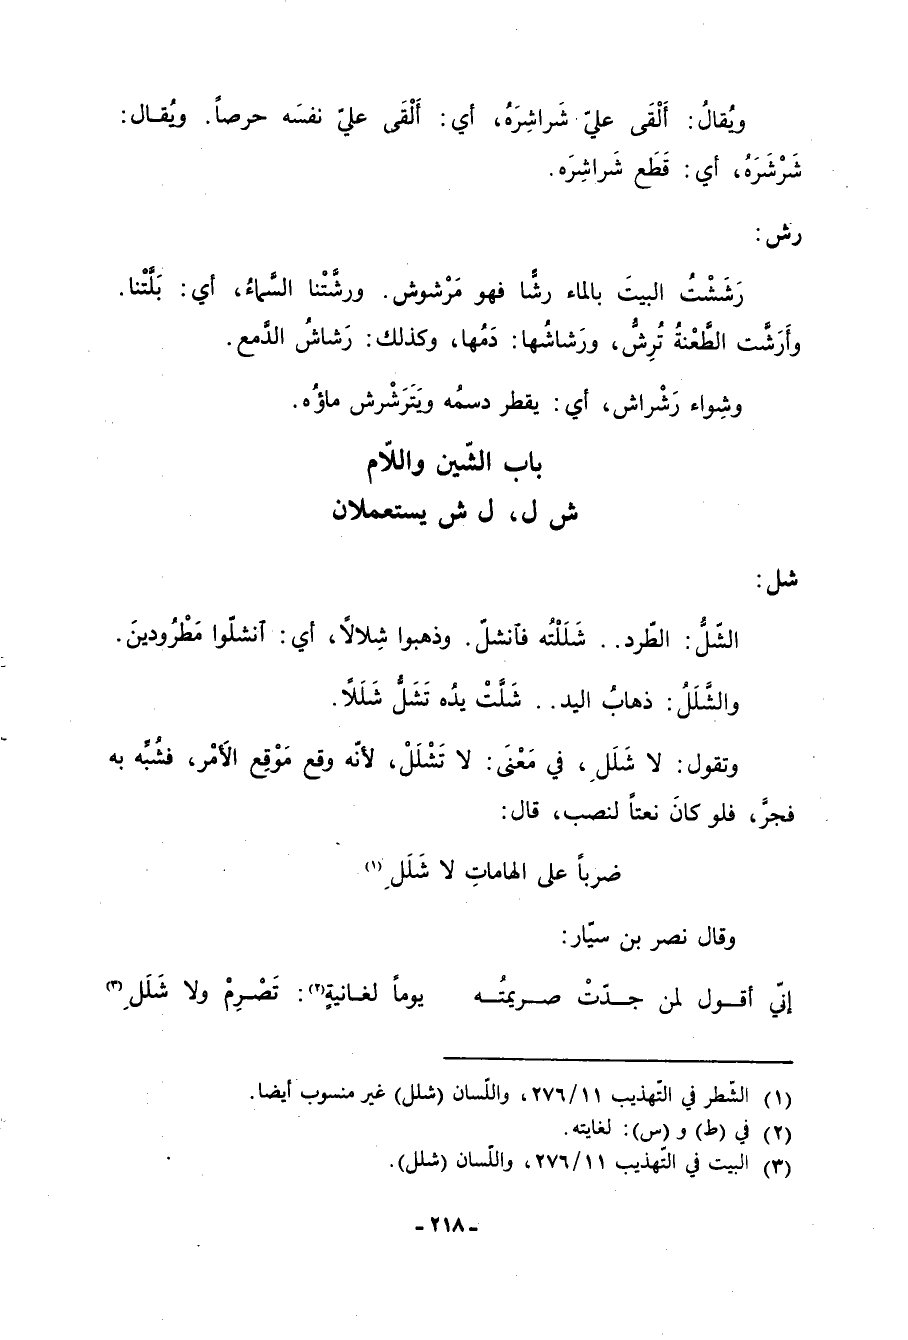 ويُقالُ: أَلْقَى عليّ شَراشِرَهُ، أي: أَلْقَى عليّ نفسَه حرصاً. ويُقـال:
شَرْشَرَهُ، أي: قَطَع شَراشِرَه.
رش:
رَشَشْتُ البيتَ بالماء رشًّا فهو مَرْشوش. ورشَّتْنا السَّماءُ، أي: بَلَّتْنا.
وأَرَشَّت الطَّعْنةُ تُرِشُّ، ورَشاشُها: دَمُها، وكذلك: رَشاشُ الدَّمع.
وشِواء رَشْراش، أي: يقطر دسمُه ويَتَرَشْرش ماؤُه.
باب الشّين واللّام
ش ل، ل ش يستعملان
شل:
الشّلُّ: الطّرد.. شَلَلْتُه فآنشلّ. وذهبوا شِلالًا، أي: آنشلّوا مَطْرُودينَ.
والشَّلَلُ: ذهابُ اليد.. شَلَّتْ يدُه تَشَلُّ شَلَلًا.
وتقول: لا شَلَلِ، في مَعْنَى: لا تَشْلَلْ، لأنّه وقع مَوْقِع الأَمْر، فشُبِّه به
فجرَّ، فلو كانَ نعتاً لنصب، قال:
ضرباً على الهاماتِ لا شَلَلِ (١)
وقال نصر بن سيّار:
إنّي أقـول لمن جـدّتْ صـريمتُـه يوماً لغـانيةٍ(٢): تَصْـرِمْ ولا شَلَلِ (٣)
(١) الشّطر في التّهذيب ٢٧٦/١١، واللّسان (شلل) غير منسوب أيضا.
(٢) في (ط) و (س): لغايته.
(٣) البيت في التّهذيب ٢٧٦/١١، واللّسان (شلل).
- ٢١٨ -